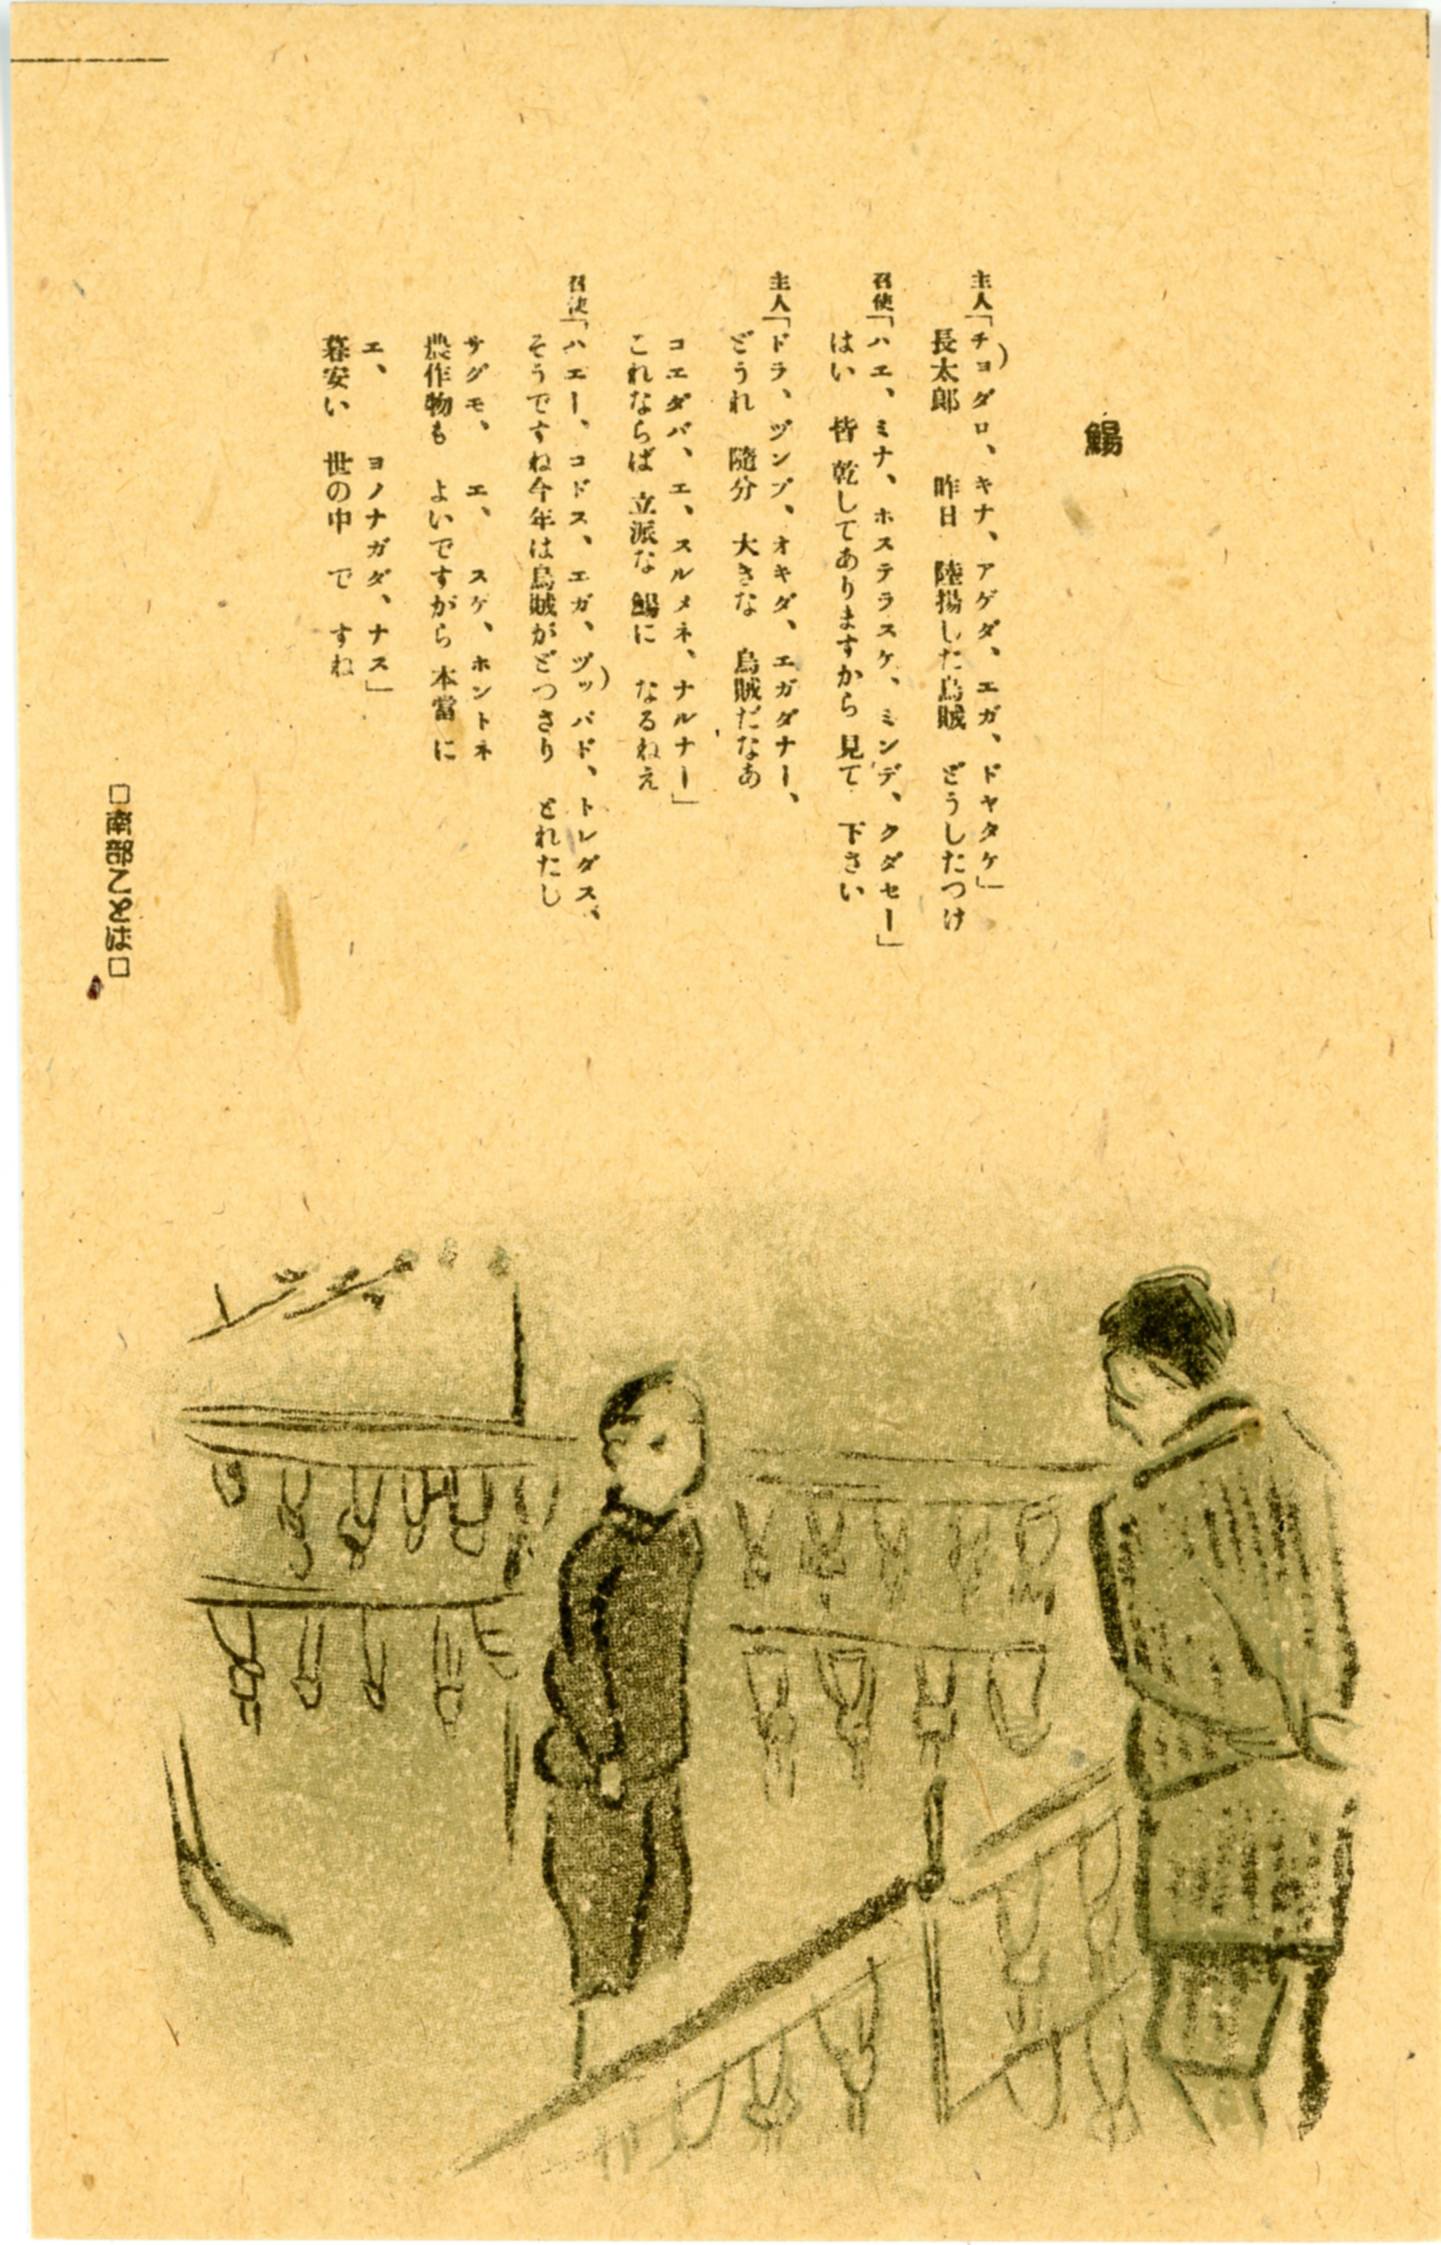 鯣
主人「チョダロ、キナ、アゲダ、エガ、ドヤタケ」
長太郎 昨日 陸揚した烏賊 どうしたつけ
召使「ハエ、ミナ、ホステラスケ、ミンデ、クダセー」
はい 皆 乾してありますから 見て 下さい
主人「ドラ、ヅンブ、オキダ、エガダナー、
どうれ 隨分 大きな 烏賊だなあ
コエダバ、エ、スルメネ、ナルナー」
これならば 立派な 鯣に なるねえ
召使「ハエー、コドス、エガ、ヅッパド、トレダス、
そうですね今年は烏賊がどつさり とれたし
サグモ、 エ、 スケ、ホントネ
農作物も よいですがら 本當に
エ、 ヨノナガダ、ナス」
暮安い 世の中 で すね
□南部ことば□